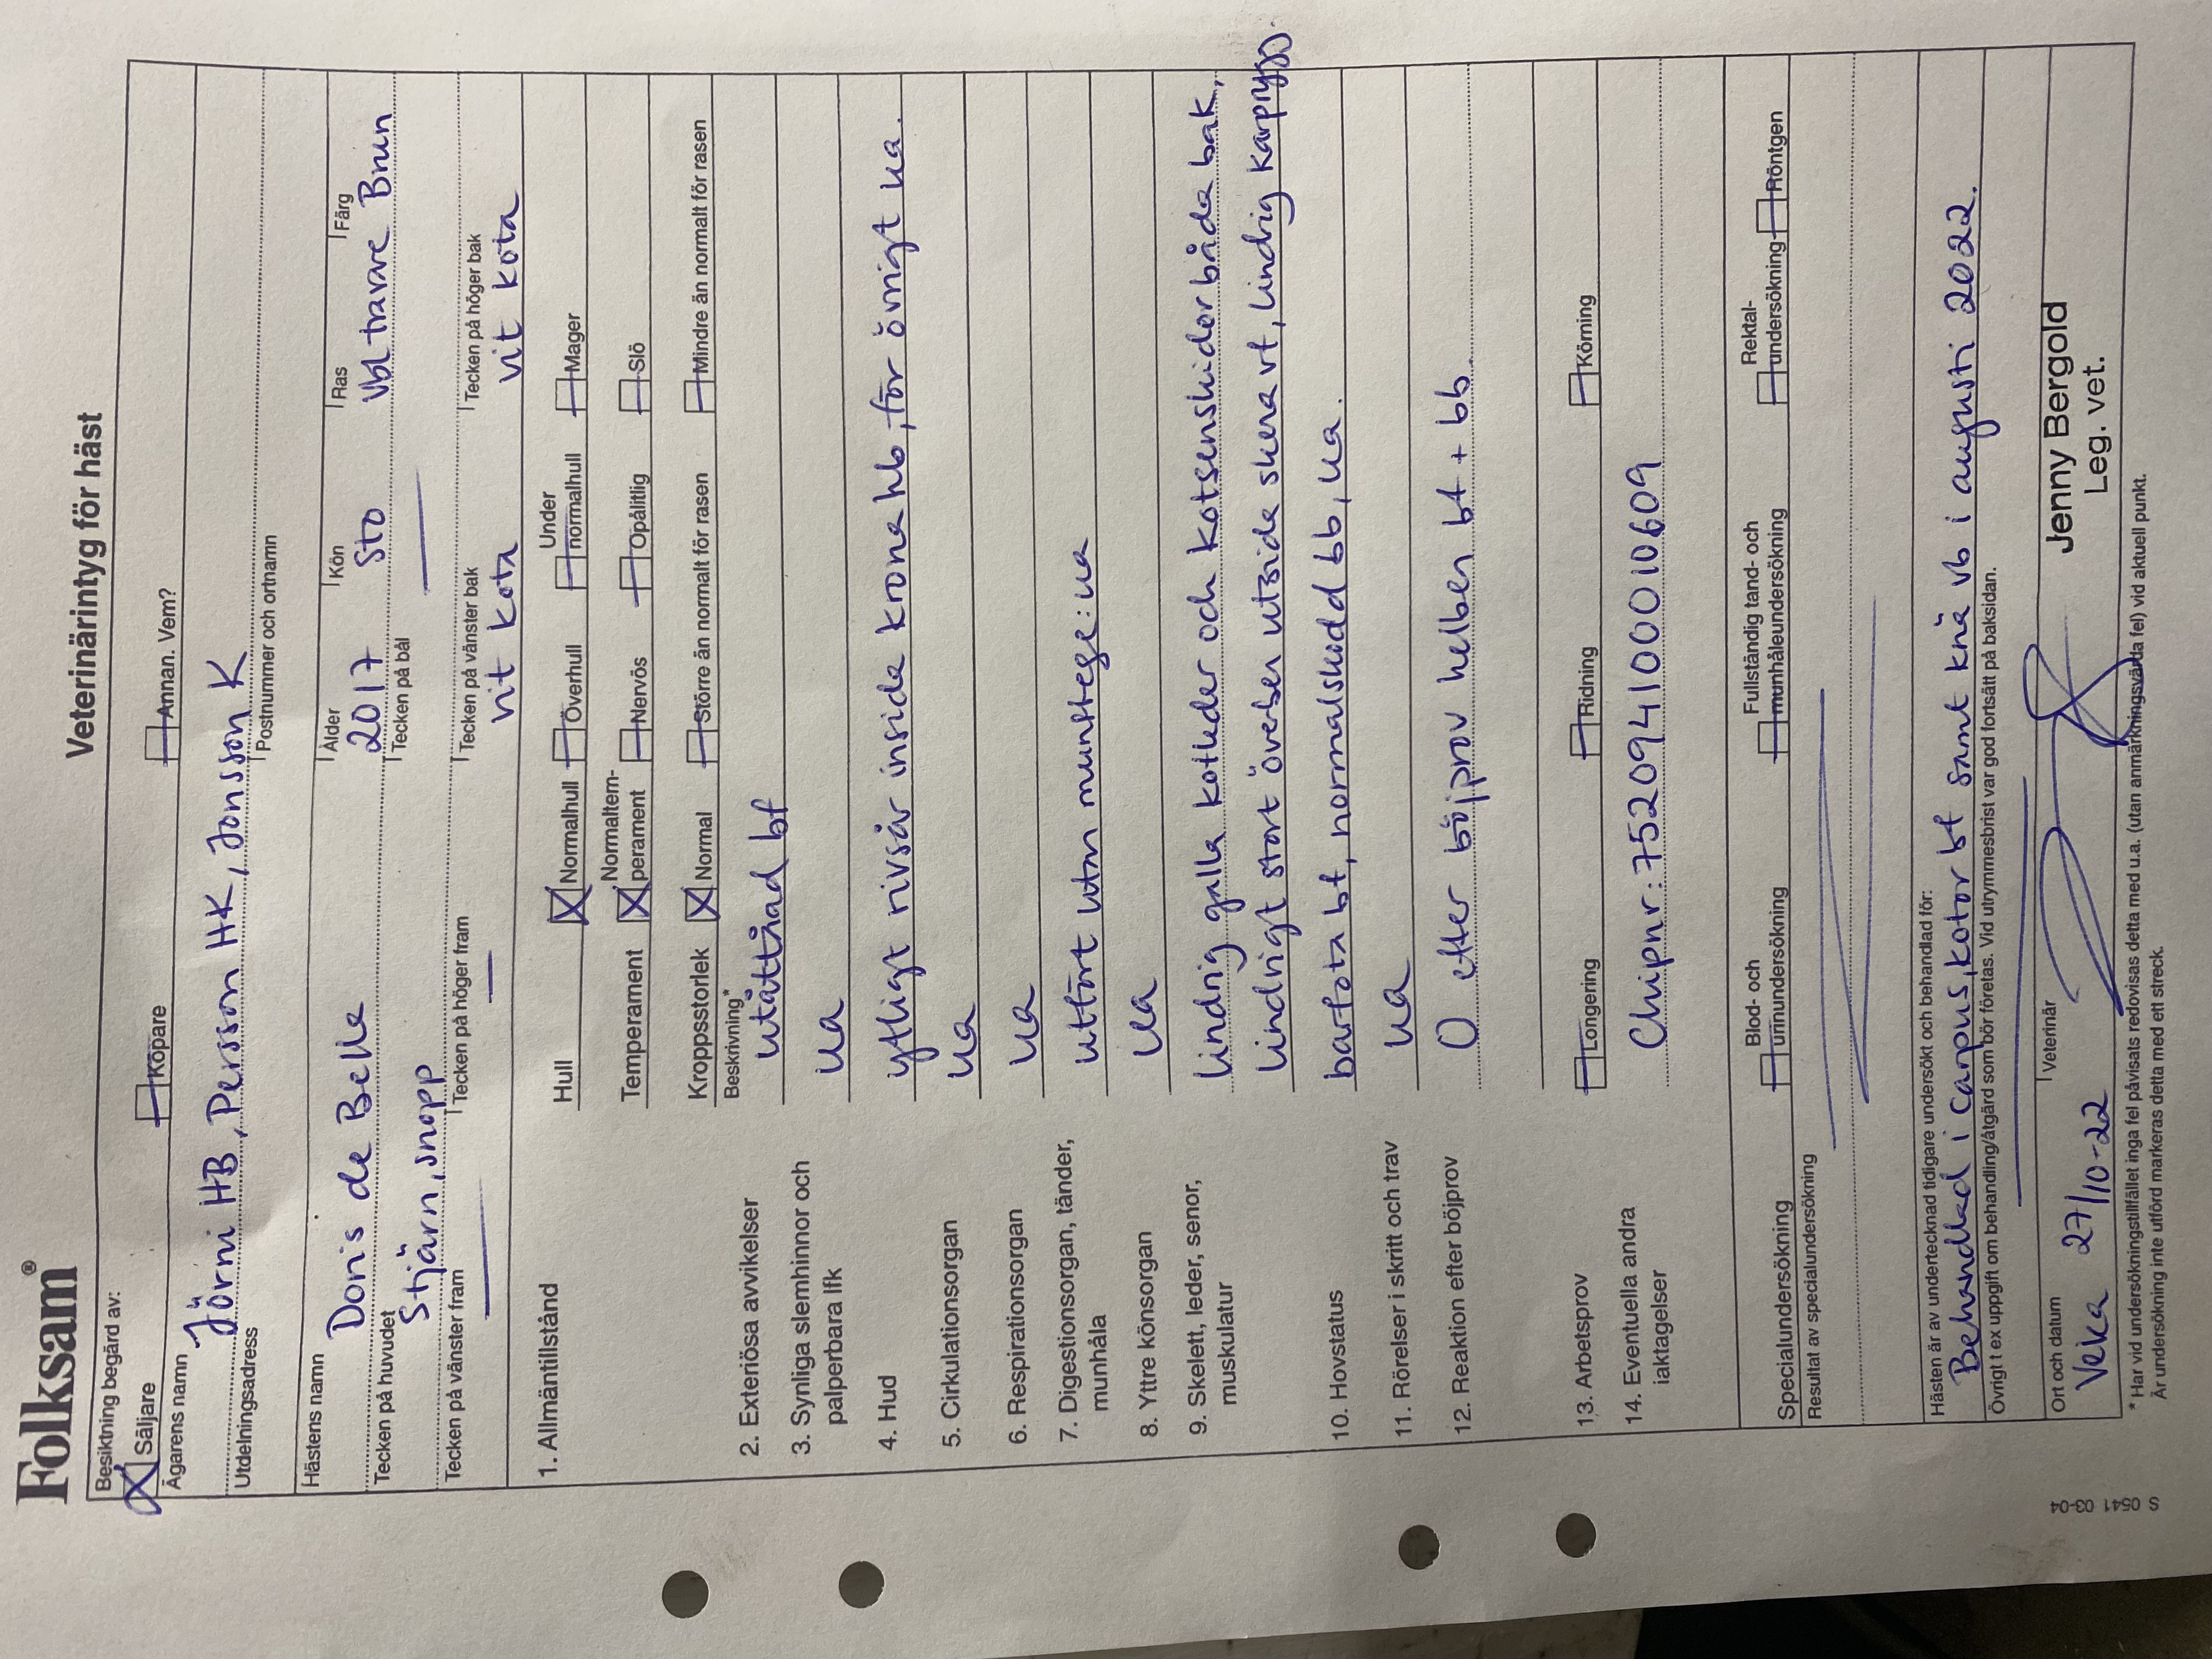 Folksam®
Veterinärintyg för häst
Besiktning begärd av:
Säljare Köpare Annan. Vem?
Ägarens namn
Jörmi HB, Persson HK, Jonsson K
Utdelningsadress Postnummer och ortnamn
Hästens namn Ålder Kön Ras Färg
Doris de Belle 2017 Sto vbl travare Brun
Tecken på huvudet Tecken på bål
Stjärn, snopp
Tecken på vänster fram Tecken på höger fram Tecken på vänster bak Tecken på höger bak
vit kota vit kota
1. Allmäntillstånd Hull Normalhull Överhull Under normalhull Mager
Temperament Normaltemperament Nervös Opålitlig Slö
Kroppsstorlek Normal Större än normalt för rasen Mindre än normalt för rasen
Beskrivning*
2. Exteriösa avvikelser utåttåad bf
3. Synliga slemhinnor och
palperbara lfk ua
4. Hud ytligt rivsår insida krona hb, för övrigt ua.
5. Cirkulationsorgan ua
6. Respirationsorgan ua
7. Digestionsorgan, tänder,
munhåla utfört utan munstege: ua
8. Yttre könsorgan ua
9. Skelett, leder, senor,
muskulatur
lindrig galla kotleder och kotsenskidor båda bak,
lindrigt stort överben utsida skena vf, lindrig karprygg.
10. Hovstatus barfota bf, normalskodd bb, ua.
11. Rörelser i skritt och trav ua
12. Reaktion efter böjprov 0 efter böjprov helben bf + bb.
13. Arbetsprov Longering Ridning Körning
14. Eventuella andra
iaktagelser Chipnr: 752094100010609
Specialundersökning Blod- och urinundersökning Fullständig tand- och munhåleundersökning Rektal-undersökning Röntgen
Resultat av specialundersökning
Hästen är av undertecknad tidigare undersökt och behandlad för:
Behandlad i carpus, kotor bf samt knä vb i augusti 2022.
Övrigt t ex uppgift om behandling/åtgärd som bör företas. Vid utrymmesbrist var god fortsätt på baksidan.
Ort och datum Veterinär
Veka 27/10-22 Jenny Bergold
Leg. vet.
* Har vid undersökningstillfället inga fel påvisats redovisas detta med u.a. (utan anmärkningsvärda fel) vid aktuell punkt.
Är undersökning inte utförd markeras detta med ett streck.
S 0541 03-04